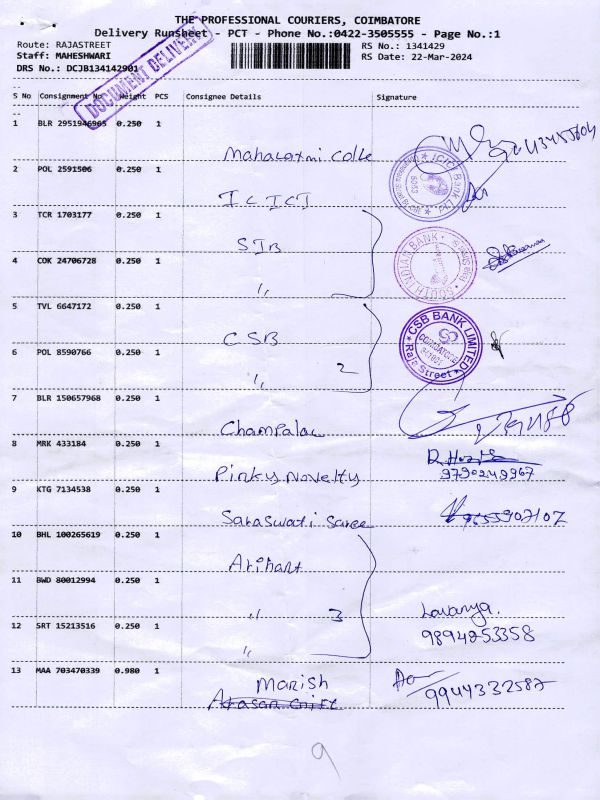 THE PROFESSIONAL COURIERS, COIMBATORE
Delivery Runsheet - PCT - Phone No.:0422-3505555 - Page No.:1
Route: RAJASTREET
RS No.: 1341429
Staff: MAHESHWARI
RS Date: 22-Mar-2024
DRS No.: DCJB134142901
DOCUMENT DELIVERY
S No Consignment No Weight PCS Consignee Details Signature
1 BLR 2951946965 0.250 1
Mahalaxmi Colle
2 POL 2591506 0.250 1
ICICI
ICICI BANK
3 TCR 1703177 0.250 1
SIB
SOUTH INDIAN BANK
4 COK 24706728 0.250 1
"
5 TVL 6647172 0.250 1
CSB
CSB BANK LIMITED
COIMBATORE
641001
Raja Street
6 POL 8590766 0.250 1
" 2
7 BLR 150657968 0.250 1
Champalal
8 MRK 433184 0.250 1
Pinky Novelty
9790249967
9 KTG 7134538 0.250 1
Saraswati Saree
9655907107
10 BHL 100265619 0.250 1
Arihant
11 BWD 80012994 0.250 1
" 3
Lavanya.
12 SRT 15213516 0.250 1
"
9894253358
13 MAA 703470339 0.980 1
Marish
Arasan Gift
9944332587
9